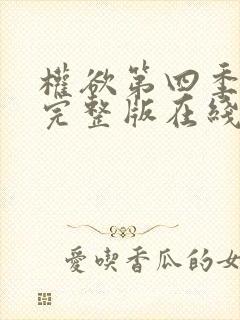 權欲第四季
完整版在綫
愛喫香瓜的女